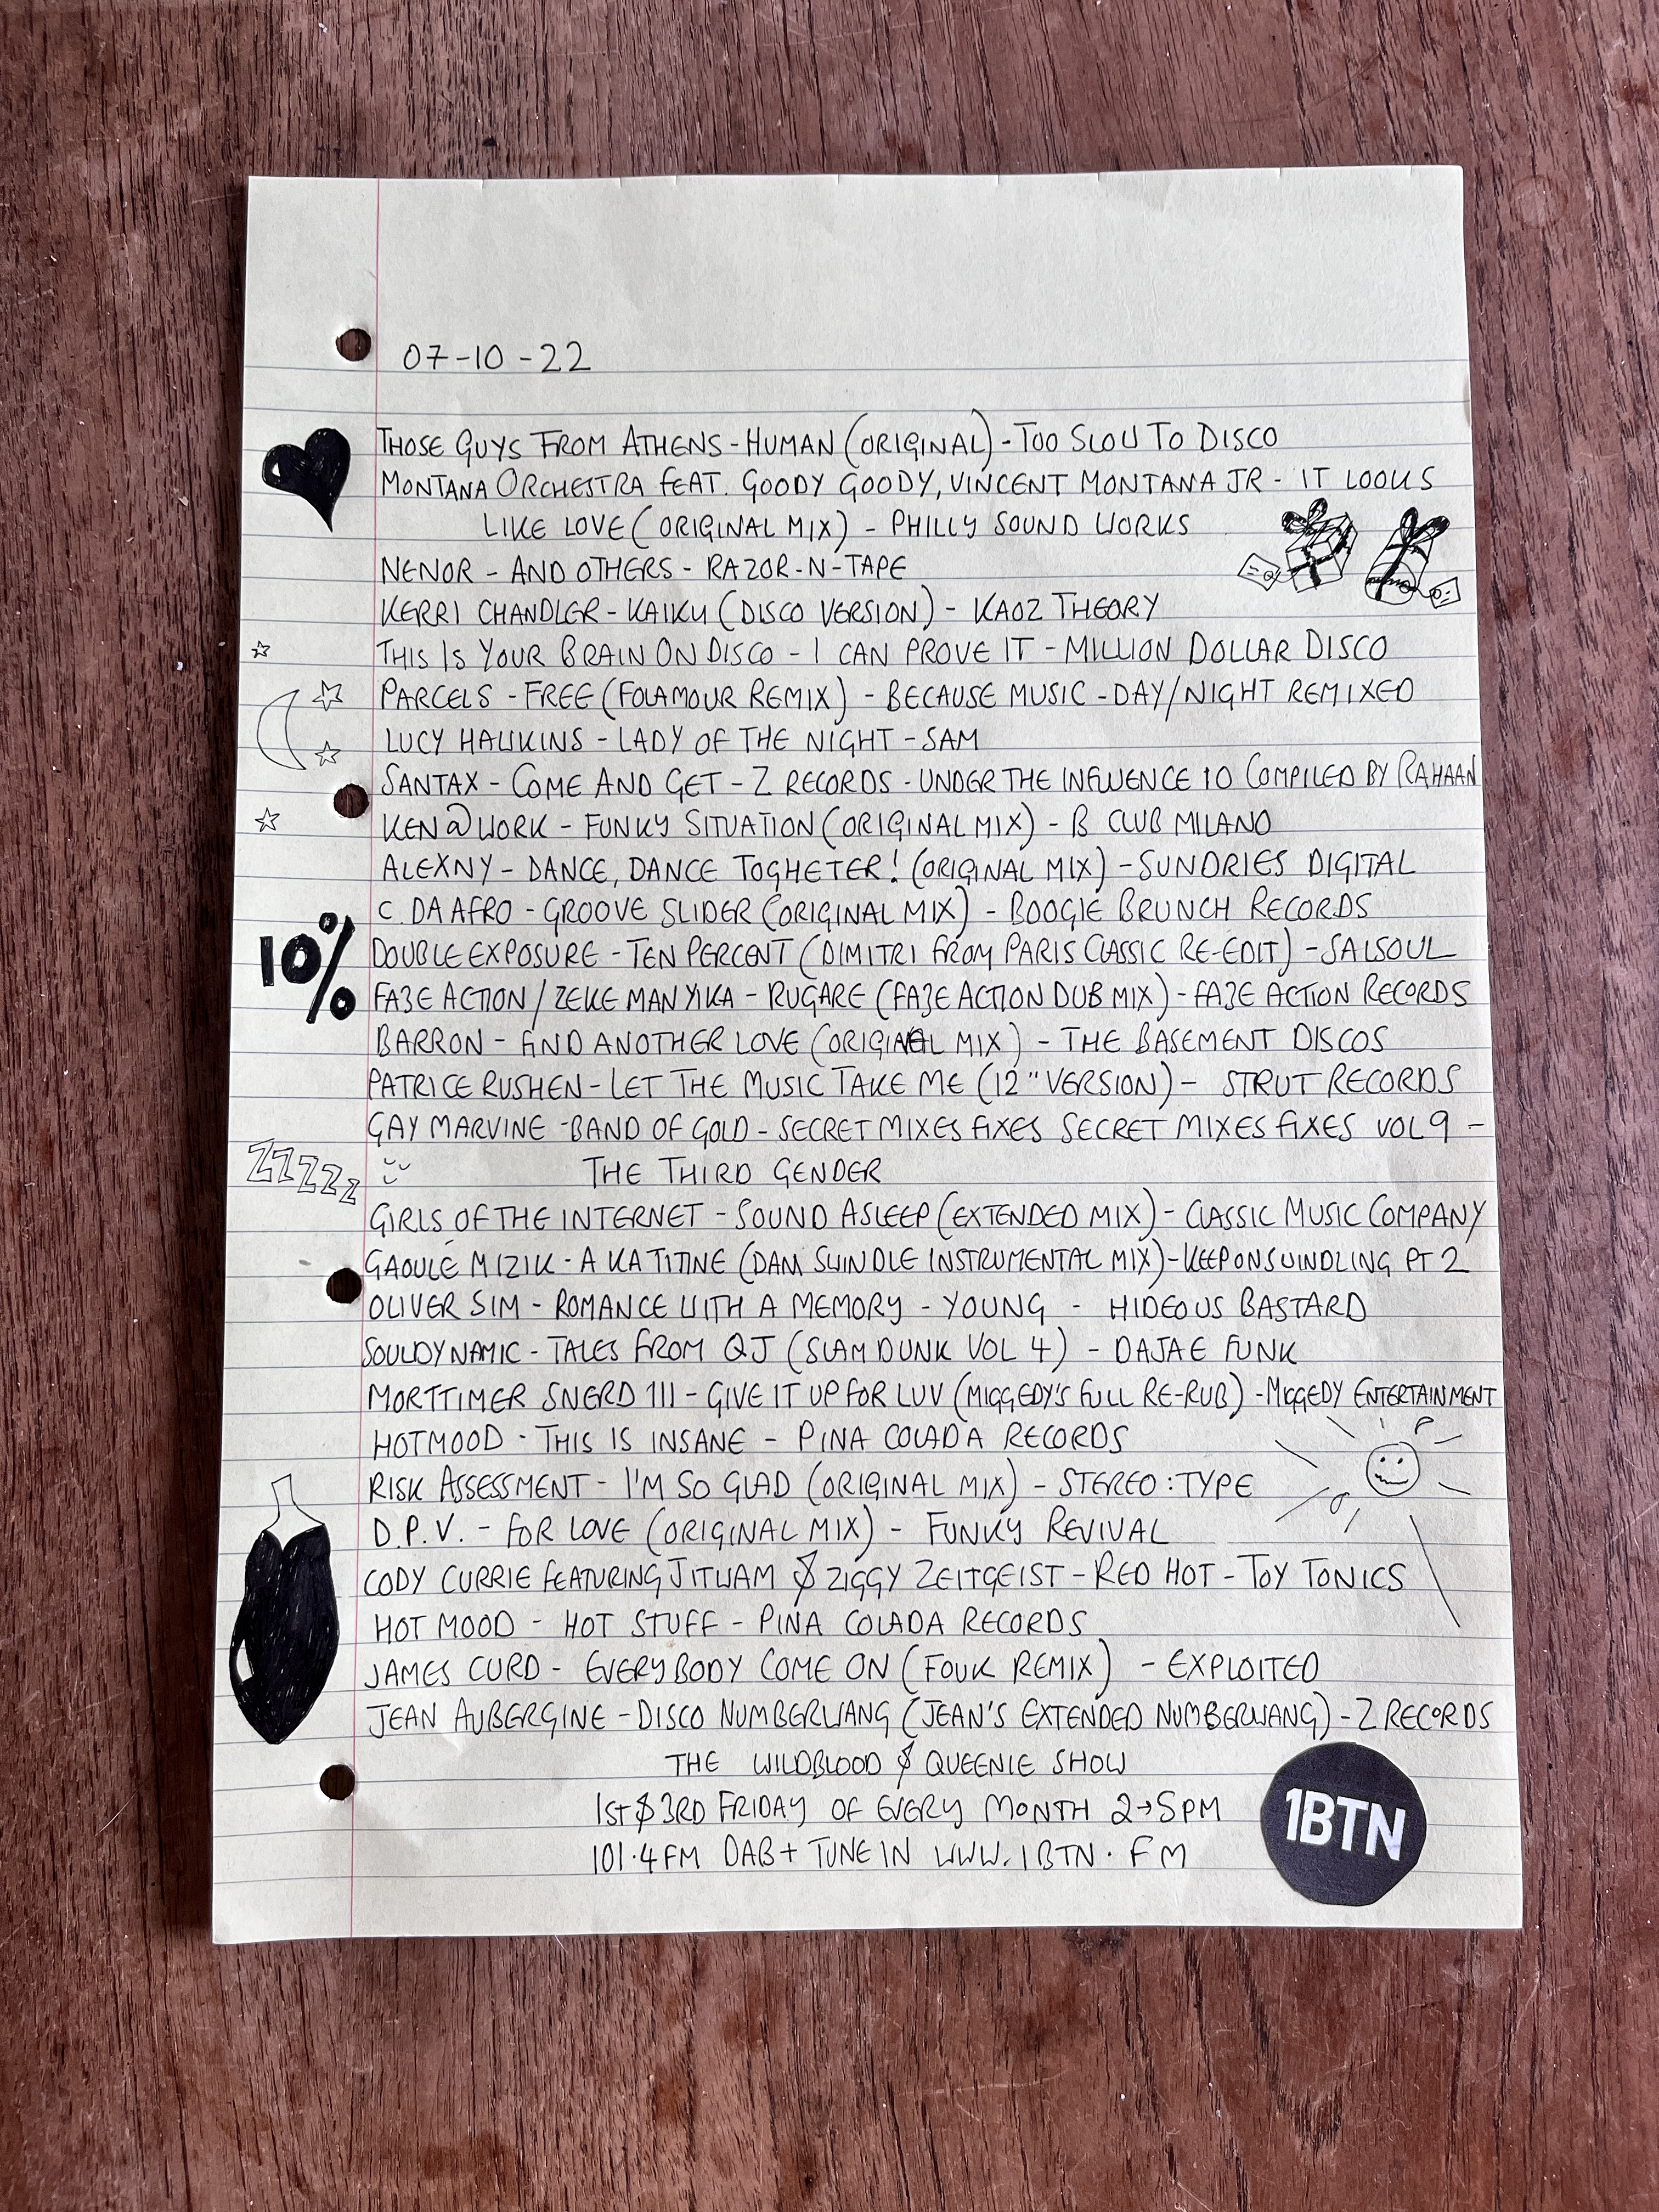 07-10-22
THOSE GUYS FROM ATHENS - HUMAN (ORIGINAL) - TOO SLOW TO DISCO
MONTANA ORCHESTRA FEAT. GOODY GOODY, VINCENT MONTANA JR - IT LOOKS
LIKE LOVE (ORIGINAL MIX) - PHILLY SOUND WORKS
NENOR - AND OTHERS - RAZOR-N-TAPE
KERRI CHANDLER - KAIKU (DISCO VERSION) - KAOZ THEORY
THIS IS YOUR BRAIN ON DISCO - I CAN PROVE IT - MILLION DOLLAR DISCO
PARCELS - FREE (FOLAMOUR REMIX) - BECAUSE MUSIC - DAY/NIGHT REMIXED
LUCY HAWKINS - LADY OF THE NIGHT - SAM
SANTAX - COME AND GET - Z RECORDS - UNDER THE INFLUENCE 10 COMPILED BY RAHAAN
KEN@WORK - FUNKY SITUATION (ORIGINAL MIX) - B CLUB MILANO
ALEXNY - DANCE, DANCE TOGHETER! (ORIGINAL MIX) - SUNDRIES DIGITAL
C. DA AFRO - GROOVE SLIDER (ORIGINAL MIX) - BOOGIE BRUNCH RECORDS
10% DOUBLE EXPOSURE - TEN PERCENT (DIMITRI FROM PARIS CLASSIC RE-EDIT) - SALSOUL
FAZE ACTION / ZEKE MANYIKA - RUGARE (FAZE ACTION DUB MIX) - FAZE ACTION RECORDS
BARRON - FIND ANOTHER LOVE (ORIGINAL MIX) - THE BASEMENT DISCOS
PATRICE RUSHEN - LET THE MUSIC TAKE ME (12" VERSION) - STRUT RECORDS
GAY MARVINE - BAND OF GOLD - SECRET MIXES FIXES SECRET MIXES FIXES VOL 9 -
ZZZZZ THE THIRD GENDER
GIRLS OF THE INTERNET - SOUND ASLEEP (EXTENDED MIX) - CLASSIC MUSIC COMPANY
GAOULÉ MIZIK - A KA TITINE (DAM SWINDLE INSTRUMENTAL MIX) - KEEP ON SWINDLING PT 2
OLIVER SIM - ROMANCE WITH A MEMORY - YOUNG - HIDEOUS BASTARD
SOULDYNAMIC - TALES FROM QJ (SLAM DUNK VOL 4) - DAJAE FUNK
MORTTIMER SNERD III - GIVE IT UP FOR LUV (MIGGEDY'S FULL RE-RUB) - MIGGEDY ENTERTAINMENT
HOTMOOD - THIS IS INSANE - PINA COLADA RECORDS
RISK ASSESSMENT - I'M SO GLAD (ORIGINAL MIX) - STEREO:TYPE
D.P.V. - FOR LOVE (ORIGINAL MIX) - FUNKY REVIVAL
CODY CURRIE FEATURING JITWAM & ZIGGY ZEITGEIST - RED HOT - TOY TONICS
HOT MOOD - HOT STUFF - PINA COLADA RECORDS
JAMES CURD - EVERYBODY COME ON (FOUK REMIX) - EXPLOITED
JEAN AUBERGINE - DISCO NUMBERWANG (JEAN'S EXTENDED NUMBERWANG) - Z RECORDS
THE WILDBLOOD & QUEENIE SHOW
1ST & 3RD FRIDAY OF EVERY MONTH 2→5PM
101.4FM DAB+ TUNE IN WWW.1BTN.FM
1BTN